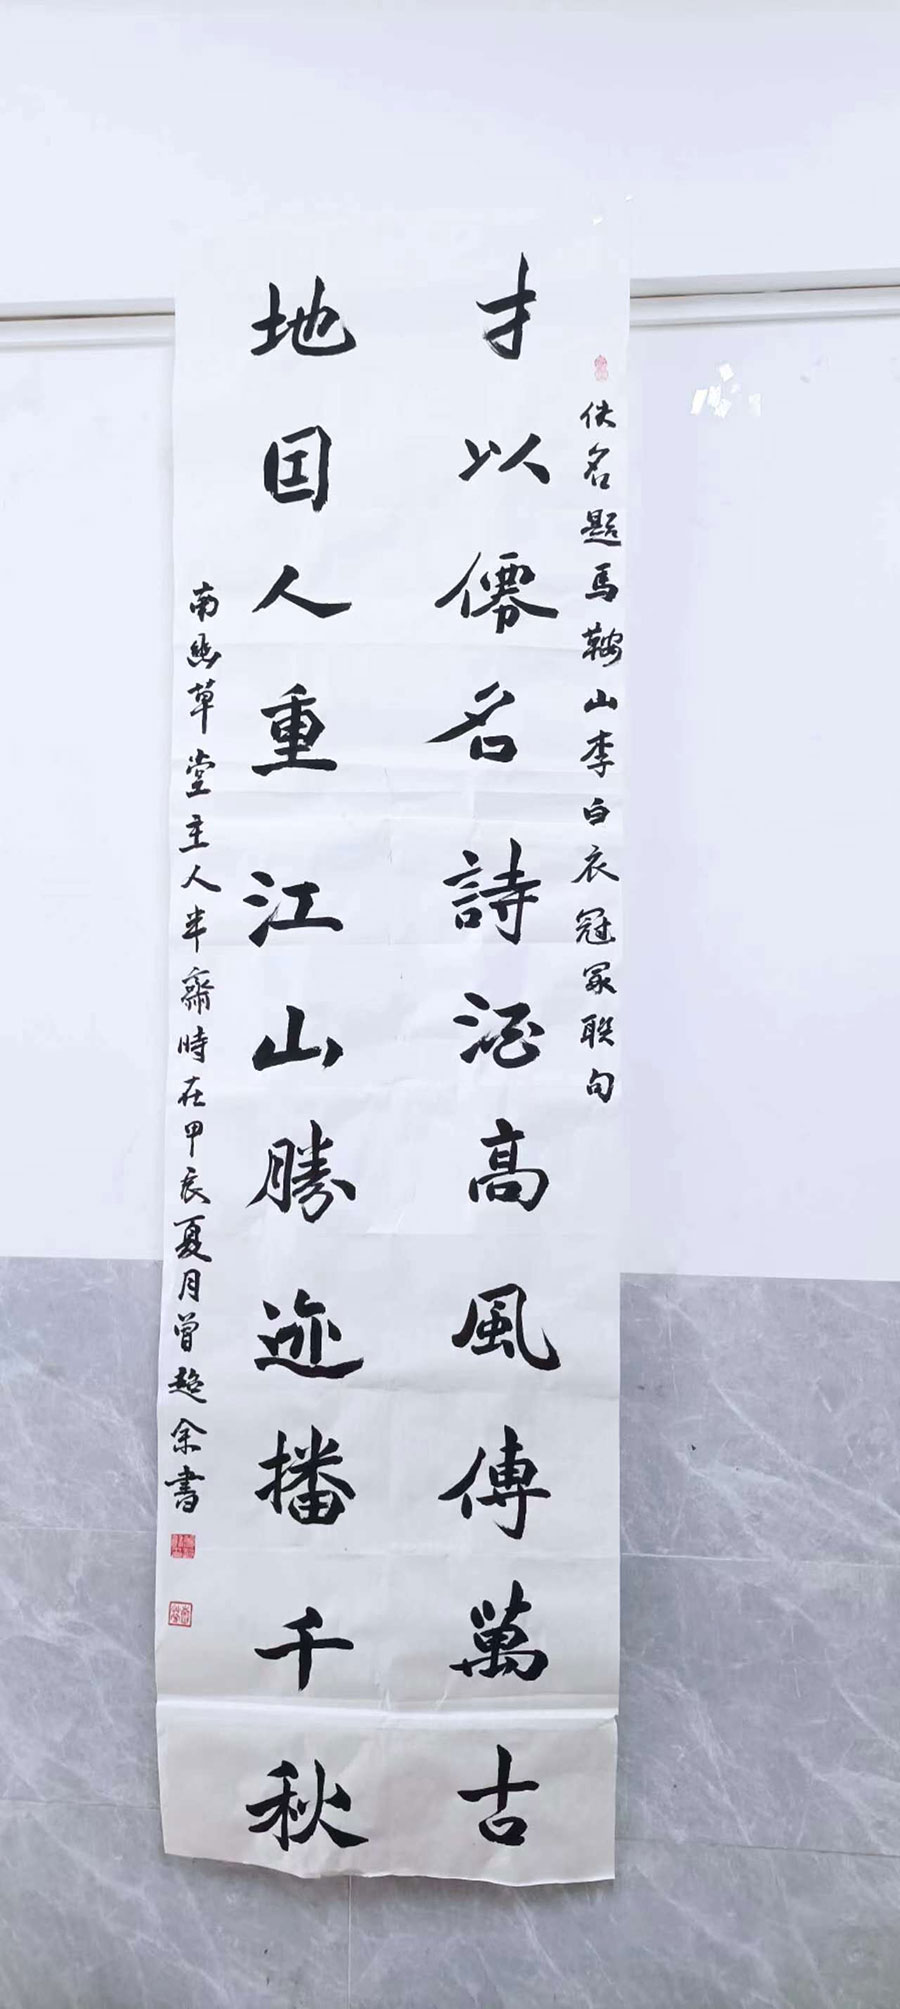 佚名题马鞍山李白衣冠冢联句
才以儒名詩酒高風傳萬古
地因人重江山勝迹播千秋
南幽草堂主人半齋時在甲辰夏月曾超余書